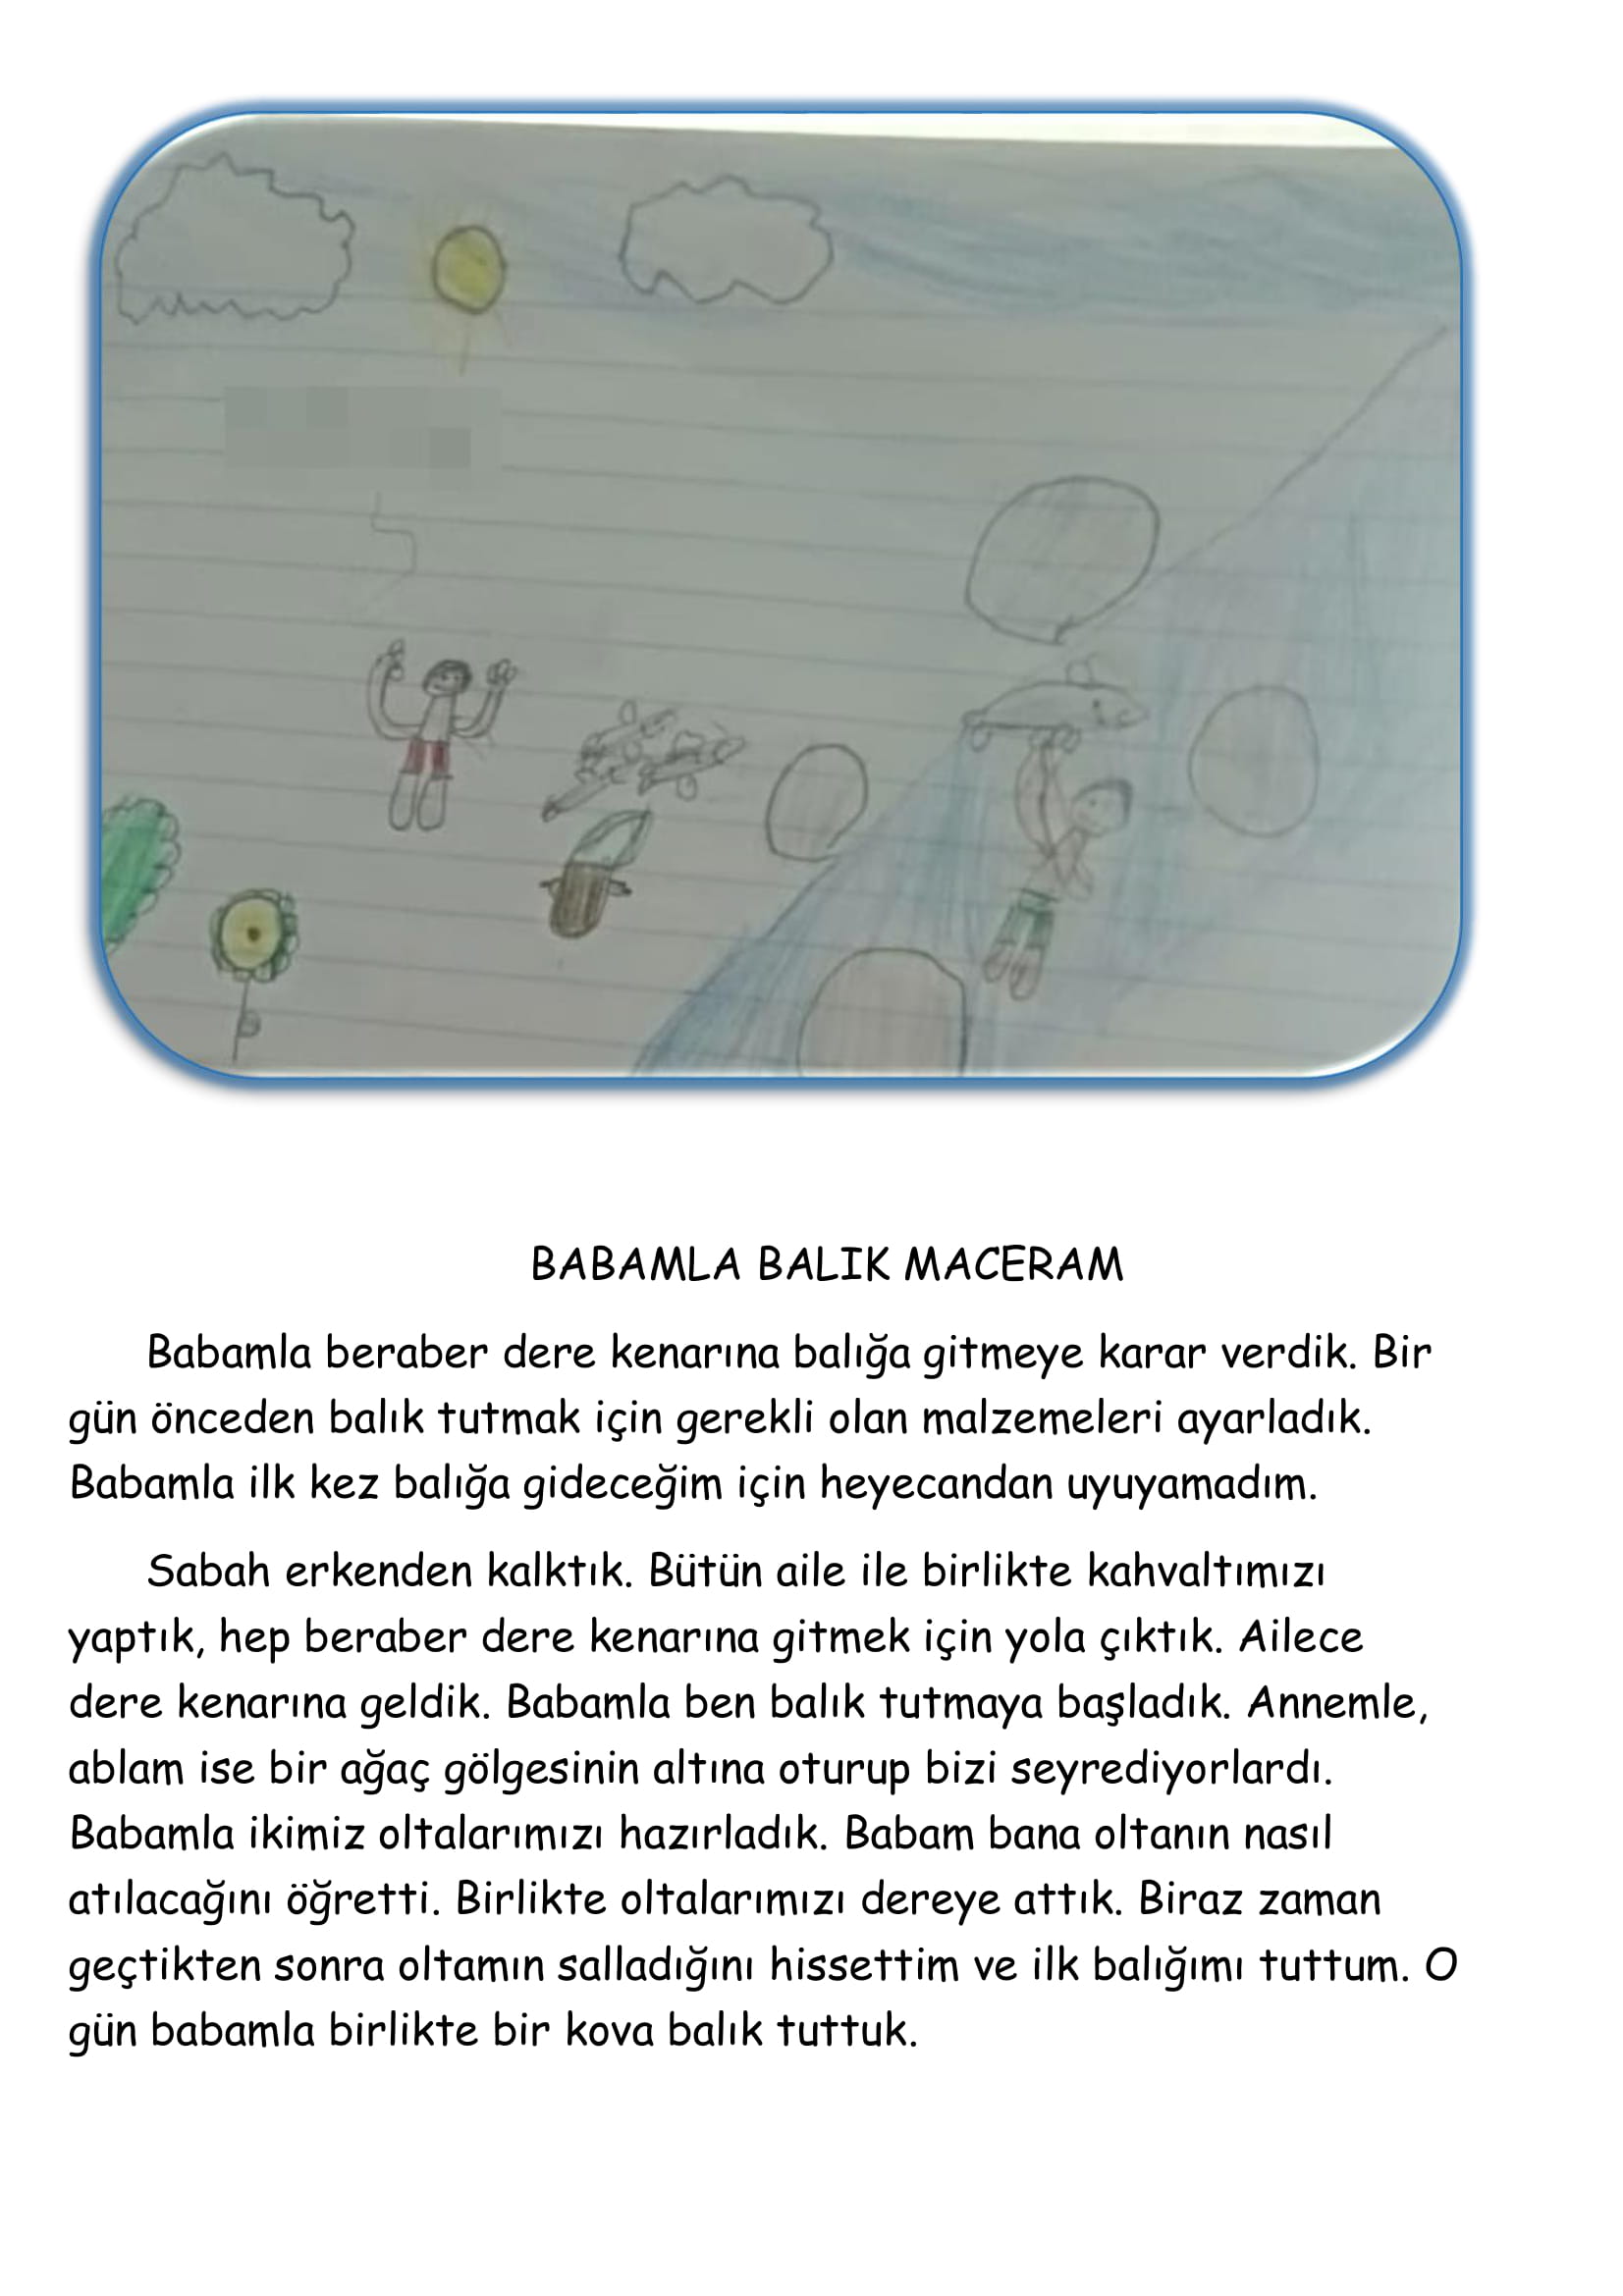 BABAMLA BALIK MACERAM
Babamla beraber dere kenarına balığa gitmeye karar verdik. Bir
gün önceden balık tutmak için gerekli olan malzemeleri ayarladık.
Babamla ilk kez balığa gideceğim için heyecandan uyuyamadım.
Sabah erkenden kalktık. Bütün aile ile birlikte kahvaltımızı
yaptık, hep beraber dere kenarına gitmek için yola çıktık. Ailece
dere kenarına geldik. Babamla ben balık tutmaya başladık. Annemle,
ablam ise bir ağaç gölgesinin altına oturup bizi seyrediyorlardı.
Babamla ikimiz oltalarımızı hazırladık. Babam bana oltanın nasıl
atılacağını öğretti. Birlikte oltalarımızı dereye attık. Biraz zaman
geçtikten sonra oltamın salladığını hissettim ve ilk balığımı tuttum. O
gün babamla birlikte bir kova balık tuttuk.